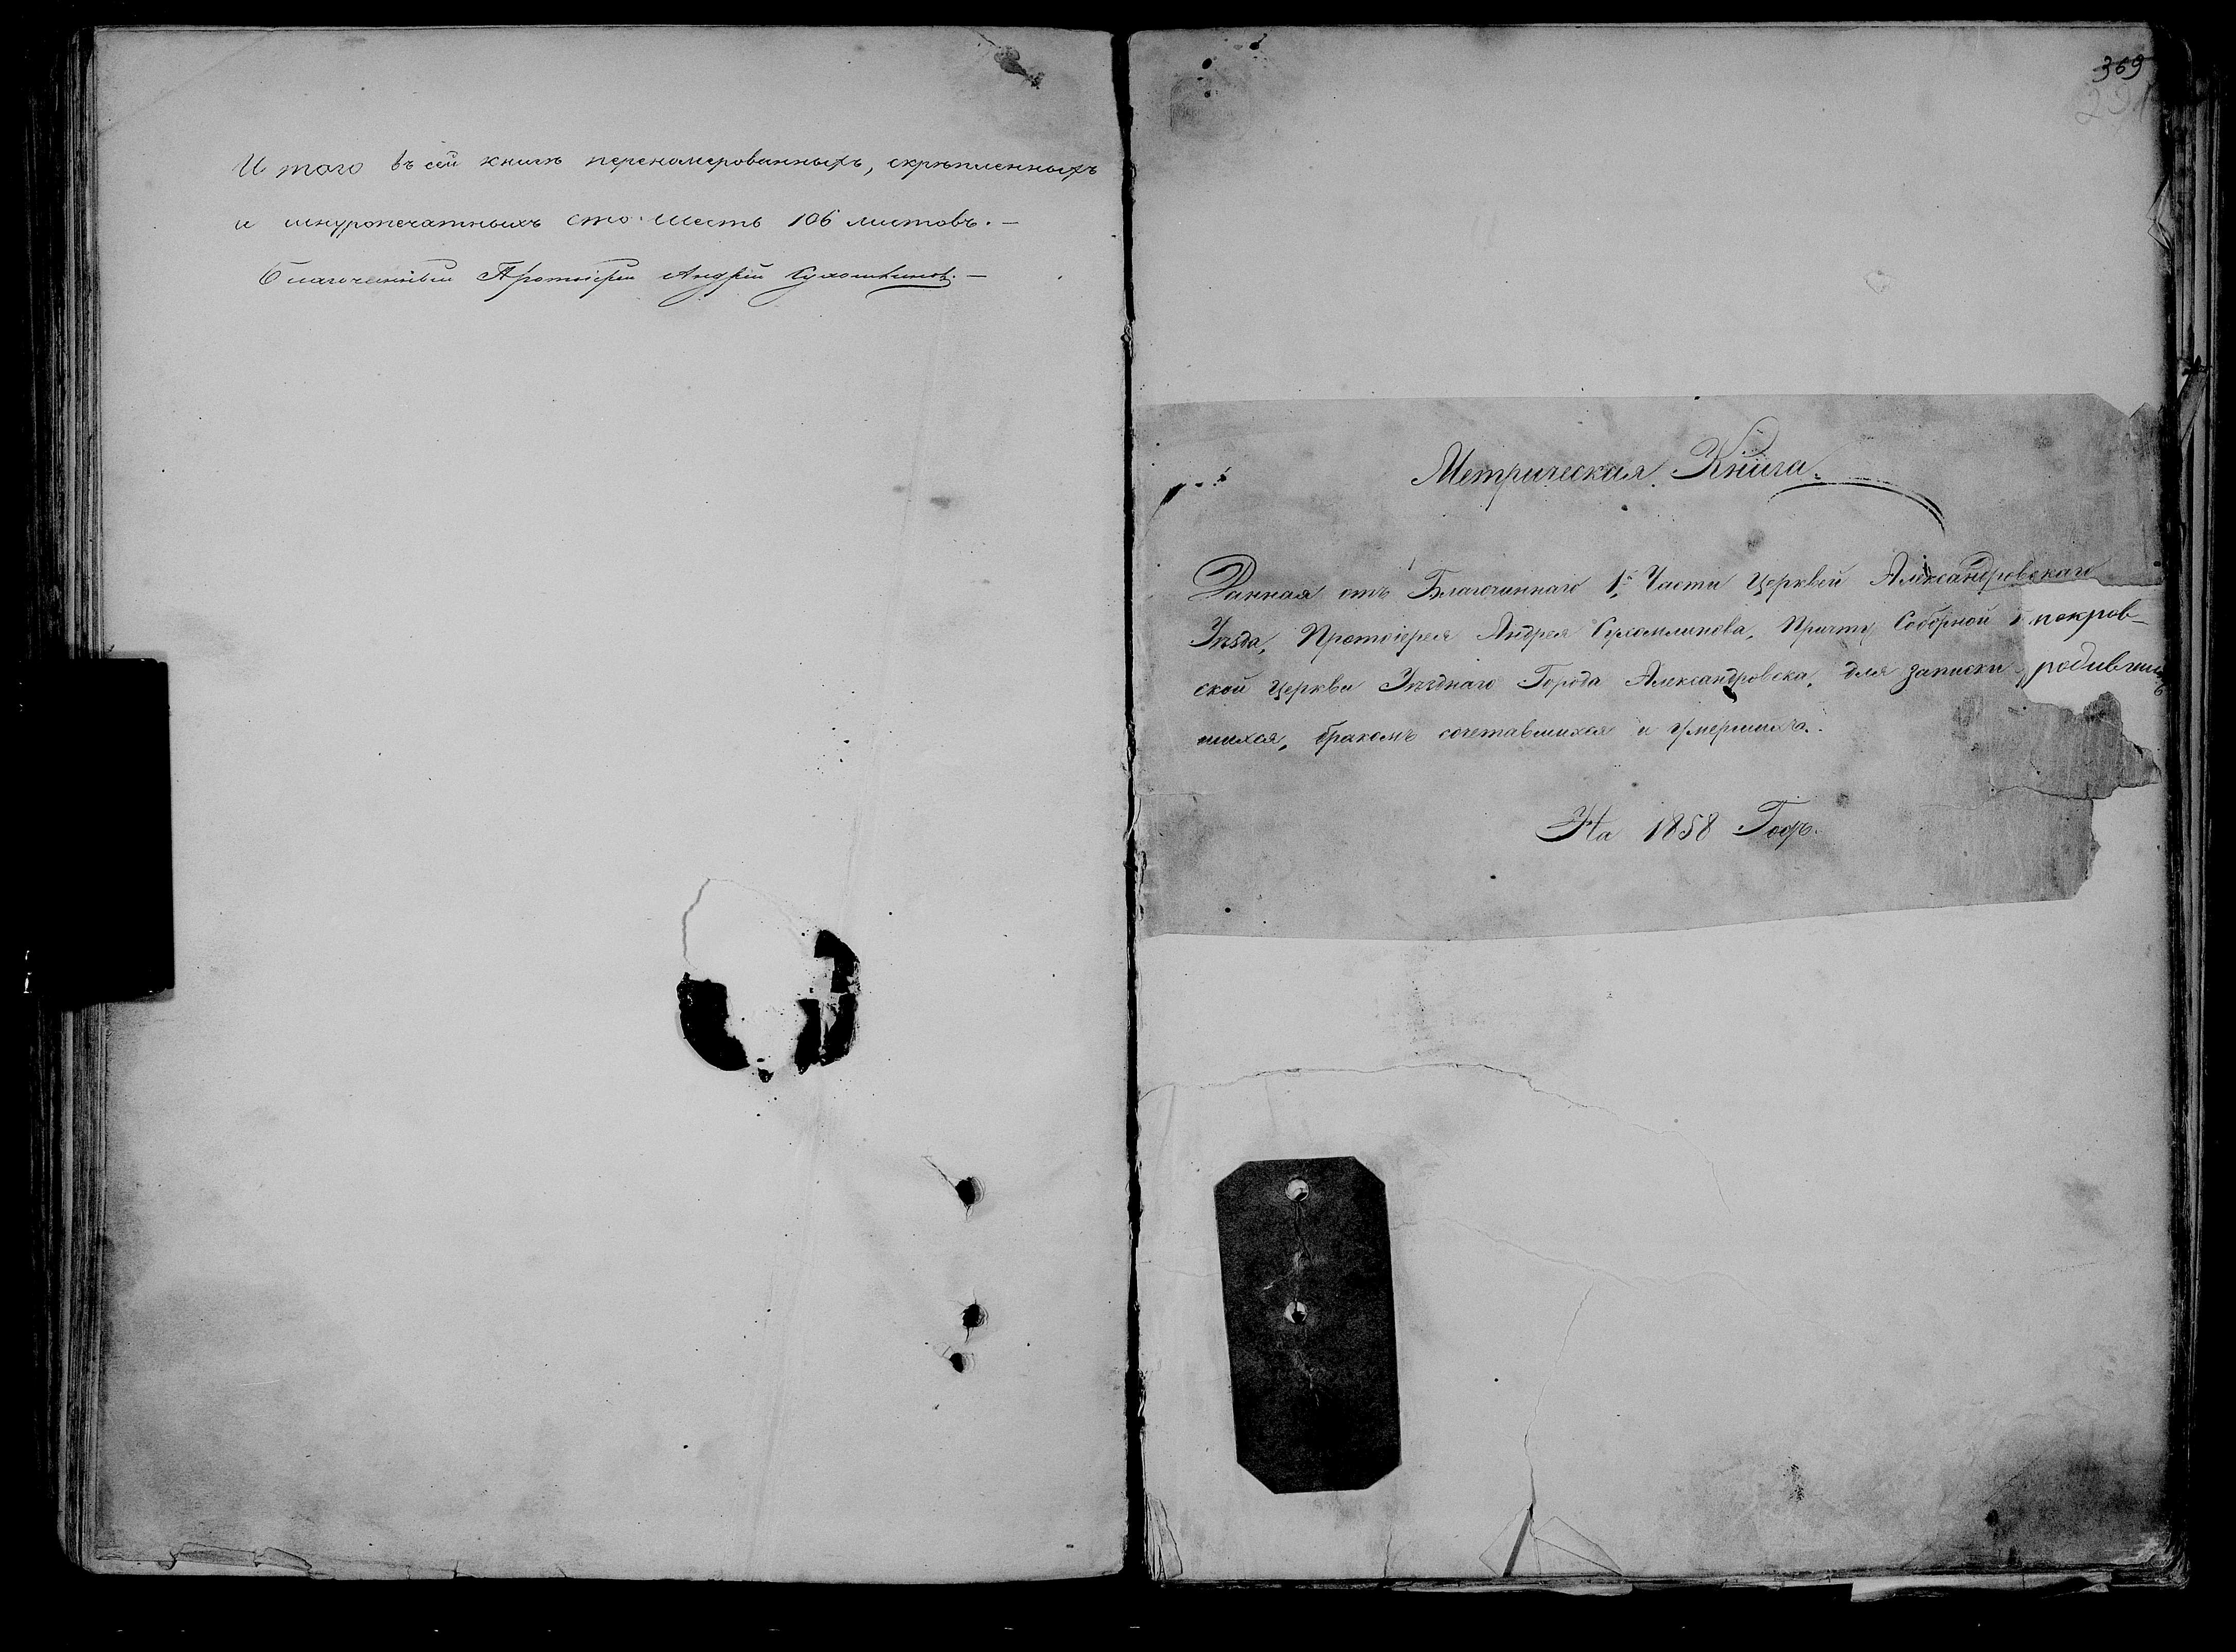 И того въ сей книгѣ перономерованныхъ, скрѣпленныхъ
и шнуропечатныхъ сто шесть 106 листовъ. —
Благочинный Протоіерей Андрей Сухомлинов. —
369
Метрическая Книга.
Данная отъ Благочиннаго 1й Части Церквей Александровскаго
Уѣзда, Протоіерея Андрея Сухомлинова, Причту Соборной покров-
ской Церкви Уѣзднаго Города Александровска, для записки родивши
шихся, бракомъ сочетавшихся и умершихъ.
На 1858 Годъ.